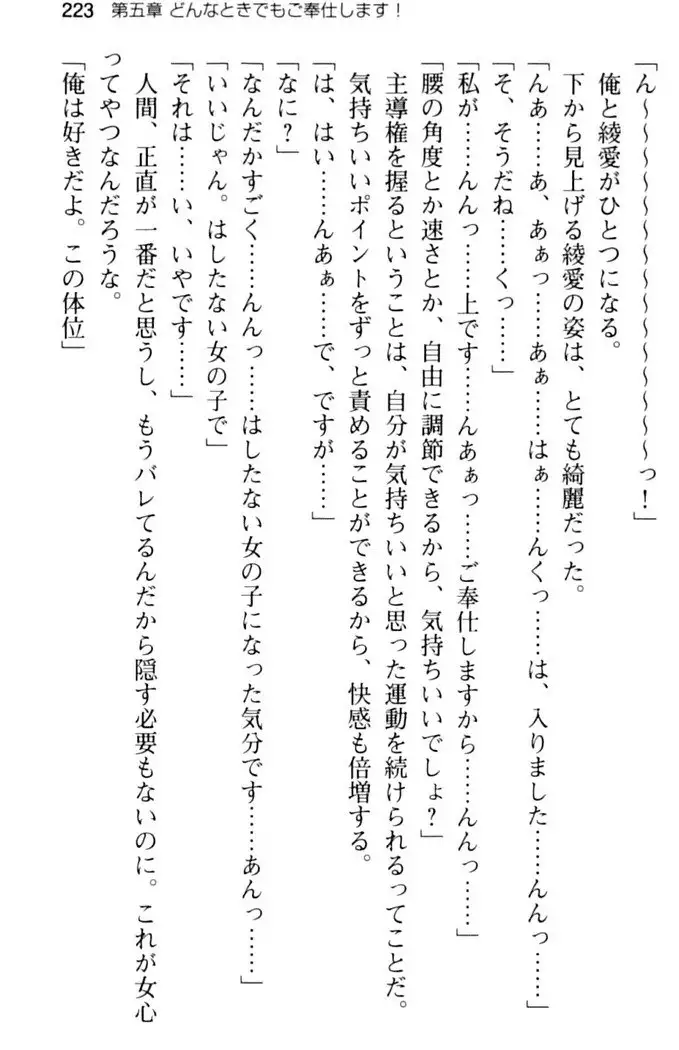 223 第五章 どんなときでもご奉仕します！
「ん～～～～～～～～～～～～～っ！」
俺と綾愛がひとつになる。
下から見上げる綾愛の姿は、とても綺麗だった。
「んあ……あ、あぁっ……あぁ……はぁ……んくっ……は、入りました……んんっ……」
「そ、そうだね……くっ……」
「私が……んんっ……上です……んあぁっ……ご奉仕しますから……んんっ……」
「腰の角度とか速さとか、自由に調節できるから、気持ちいいでしょ？」
主導権を握るということは、自分が気持ちいいと思った運動を続けられるってことだ。
気持ちいいポイントをずっと責めることができるから、快感も倍増する。
「は、はい……んあぁ……で、ですが……」
「なに？」
「なんだかすごく……んんっ……はしたない女の子になった気分です……あんっ……」
「いいじゃん。はしたない女の子で」
「それは……い、いやです……」
人間、正直が一番だと思うし、もうバレてるんだから隠す必要もないのに。これが女心
ってやつなんだろうな。
「俺は好きだよ。この体位」